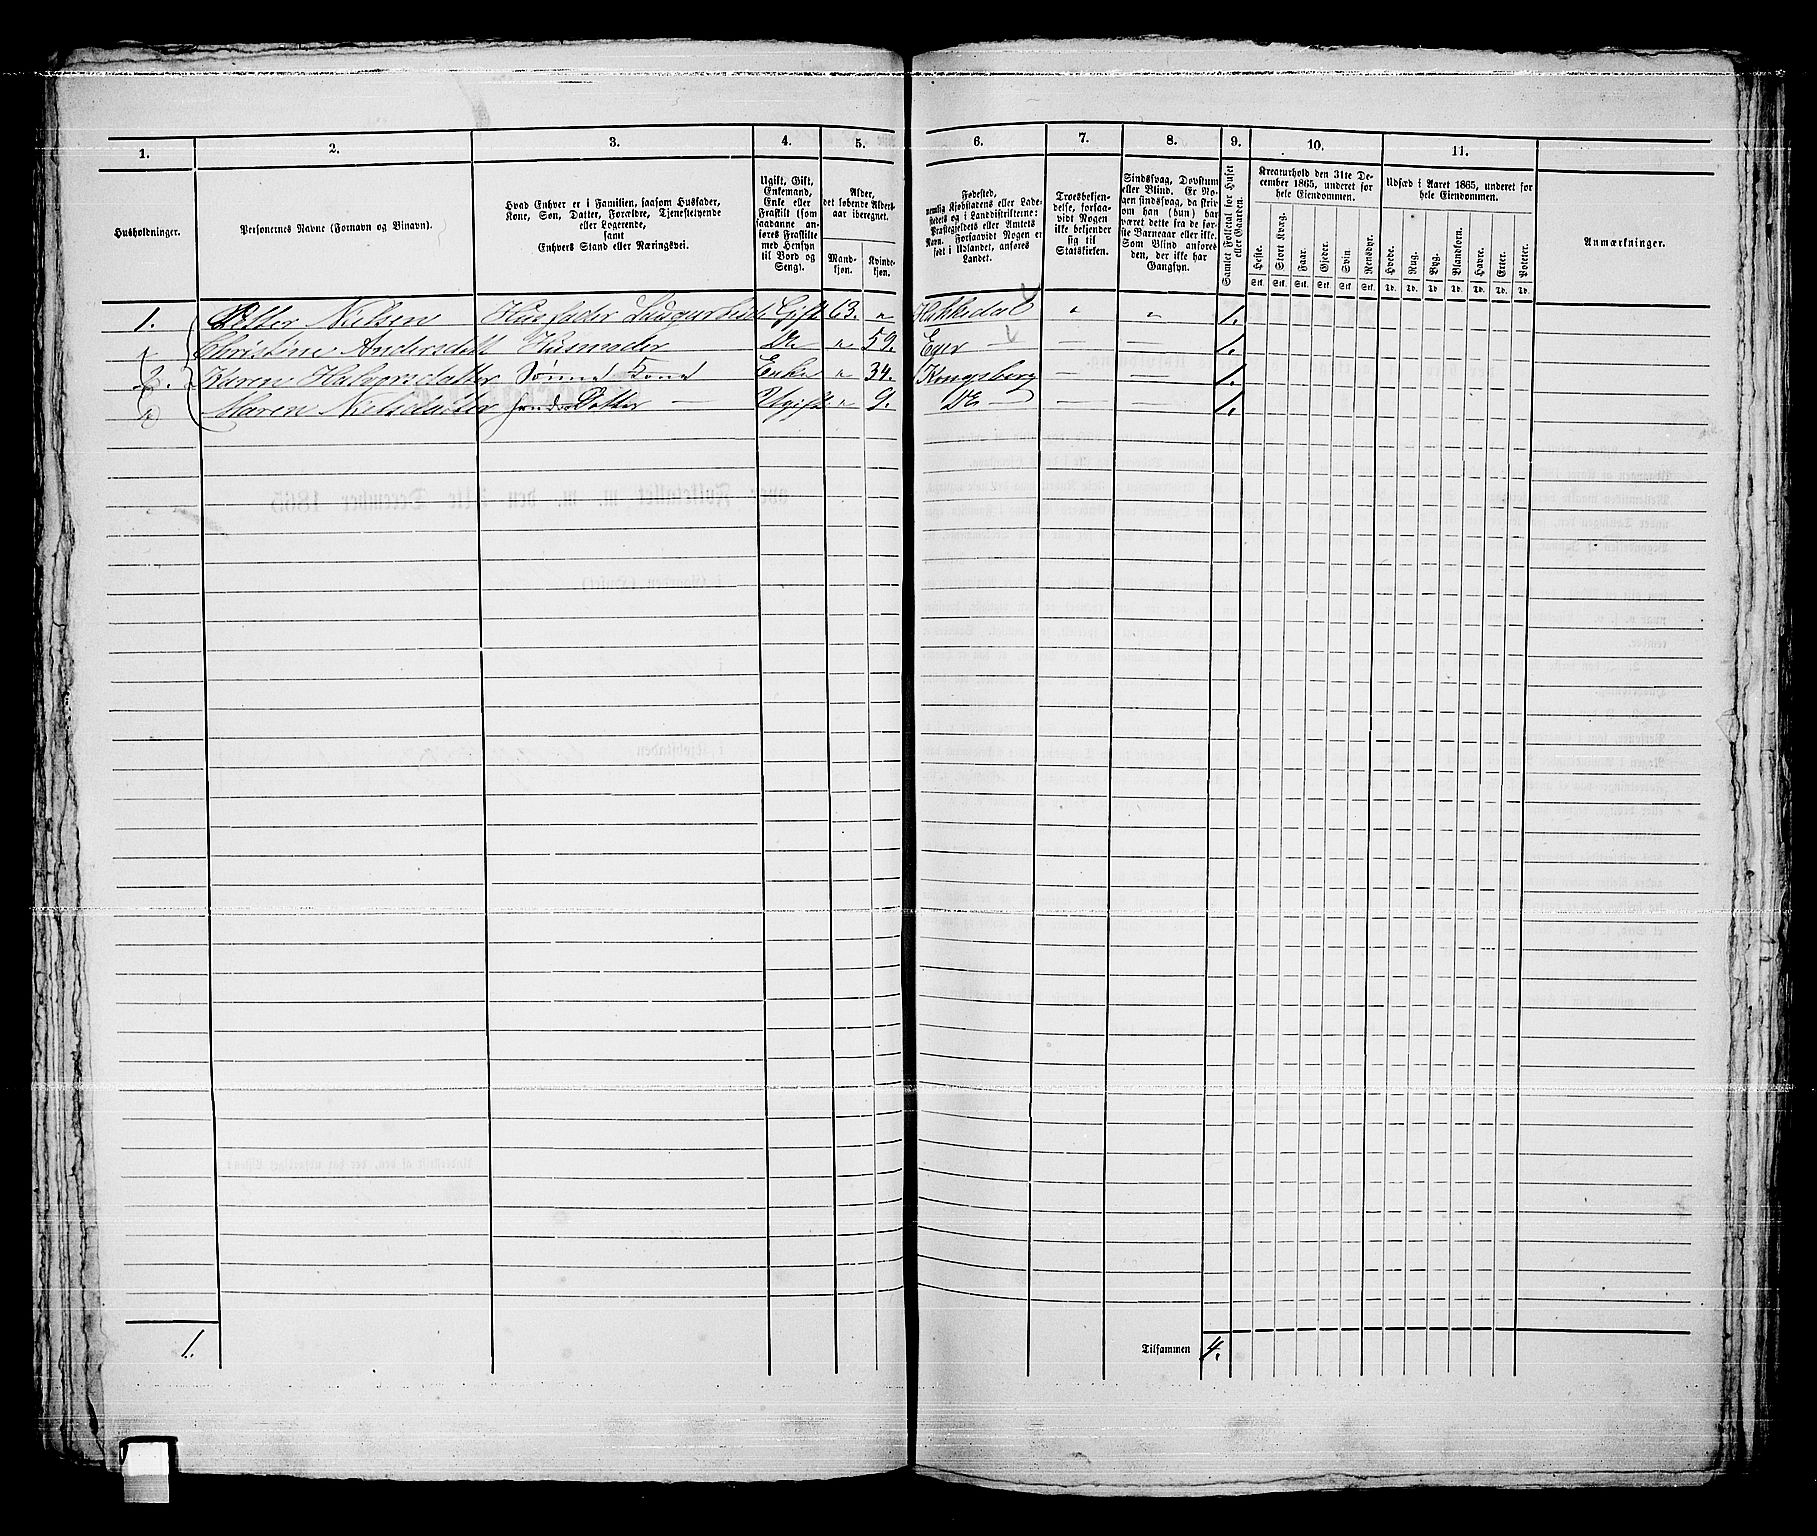 1. 2. 3. 4. 5. 6. 7. 8. 9. 10. 11.
Husholdninger.
Personernes Navne (Fornavn og Binavn).
Hvad Enhver er i Familien, saasom Husfader,
Kone, Søn, Datter, Forældre, Tjenestetyende
eller Logerende,
samt
Enhvers Stand eller Næringsvei.
Ugift, Gift,
Enkemand,
Enke eller
Fraskilt (som
saadanne an-
føres Fraskilte
med Hensyn
til Bord og
Seng).
Alder,
det løbende Alders-
aar iberegnet.
Mand-
kjøn.
Kvinde-
kjøn.
Fødested,
nemlig Kjøbstadens eller Lade-
stedets og i Landdistrikterne:
Præstegjeldets eller Amtets
Navn. Forsaavidt Nogen er
født i Udlandet, anføres
Landet.
Troesbekjen-
delse, forsaa-
vidt Nogen
ikke bekjender
sig til
Statskirken.
Sindssvag, Døvstum
eller Blind. Er No-
gen sindssvag, da skriv
om han (hun) har
været dette fra de før-
ste Barneaar eller ikke.
Som Blind anføres
den, der ikke har
Gangsyn.
Samlet Folketal for Huset
eller Gaarden.
Kreaturhold den 31te De-
cember 1865, underet for
hele Eiendommen.
Heste. Stort Kvæg. Faar. Gjeder. Svin. Rensdyr.
Stk. Stk. Stk. Stk. Stk. Stk.
Udsæd i Aaret 1865, underet for
hele Eiendommen.
Hvede. Rug. Byg. Blandkorn. Havre. Erter. Poteter.
Td. Td. Td. Td. Td. Td. Td.
Anmærkninger.
1. Petter Nielsen Husfader Gift 63. " Hakkedal " " 1.
" Christine Andersdatt Husmoder Do " 59. Eger — — 1.
2. Karen Halvorsdatter Sønns Kone Enke " 34. Kongsberg — — 1.
" Maren Nielsdatter Datter — Ugift " 9. Do — — 1.
1.
Tilsammen 4.